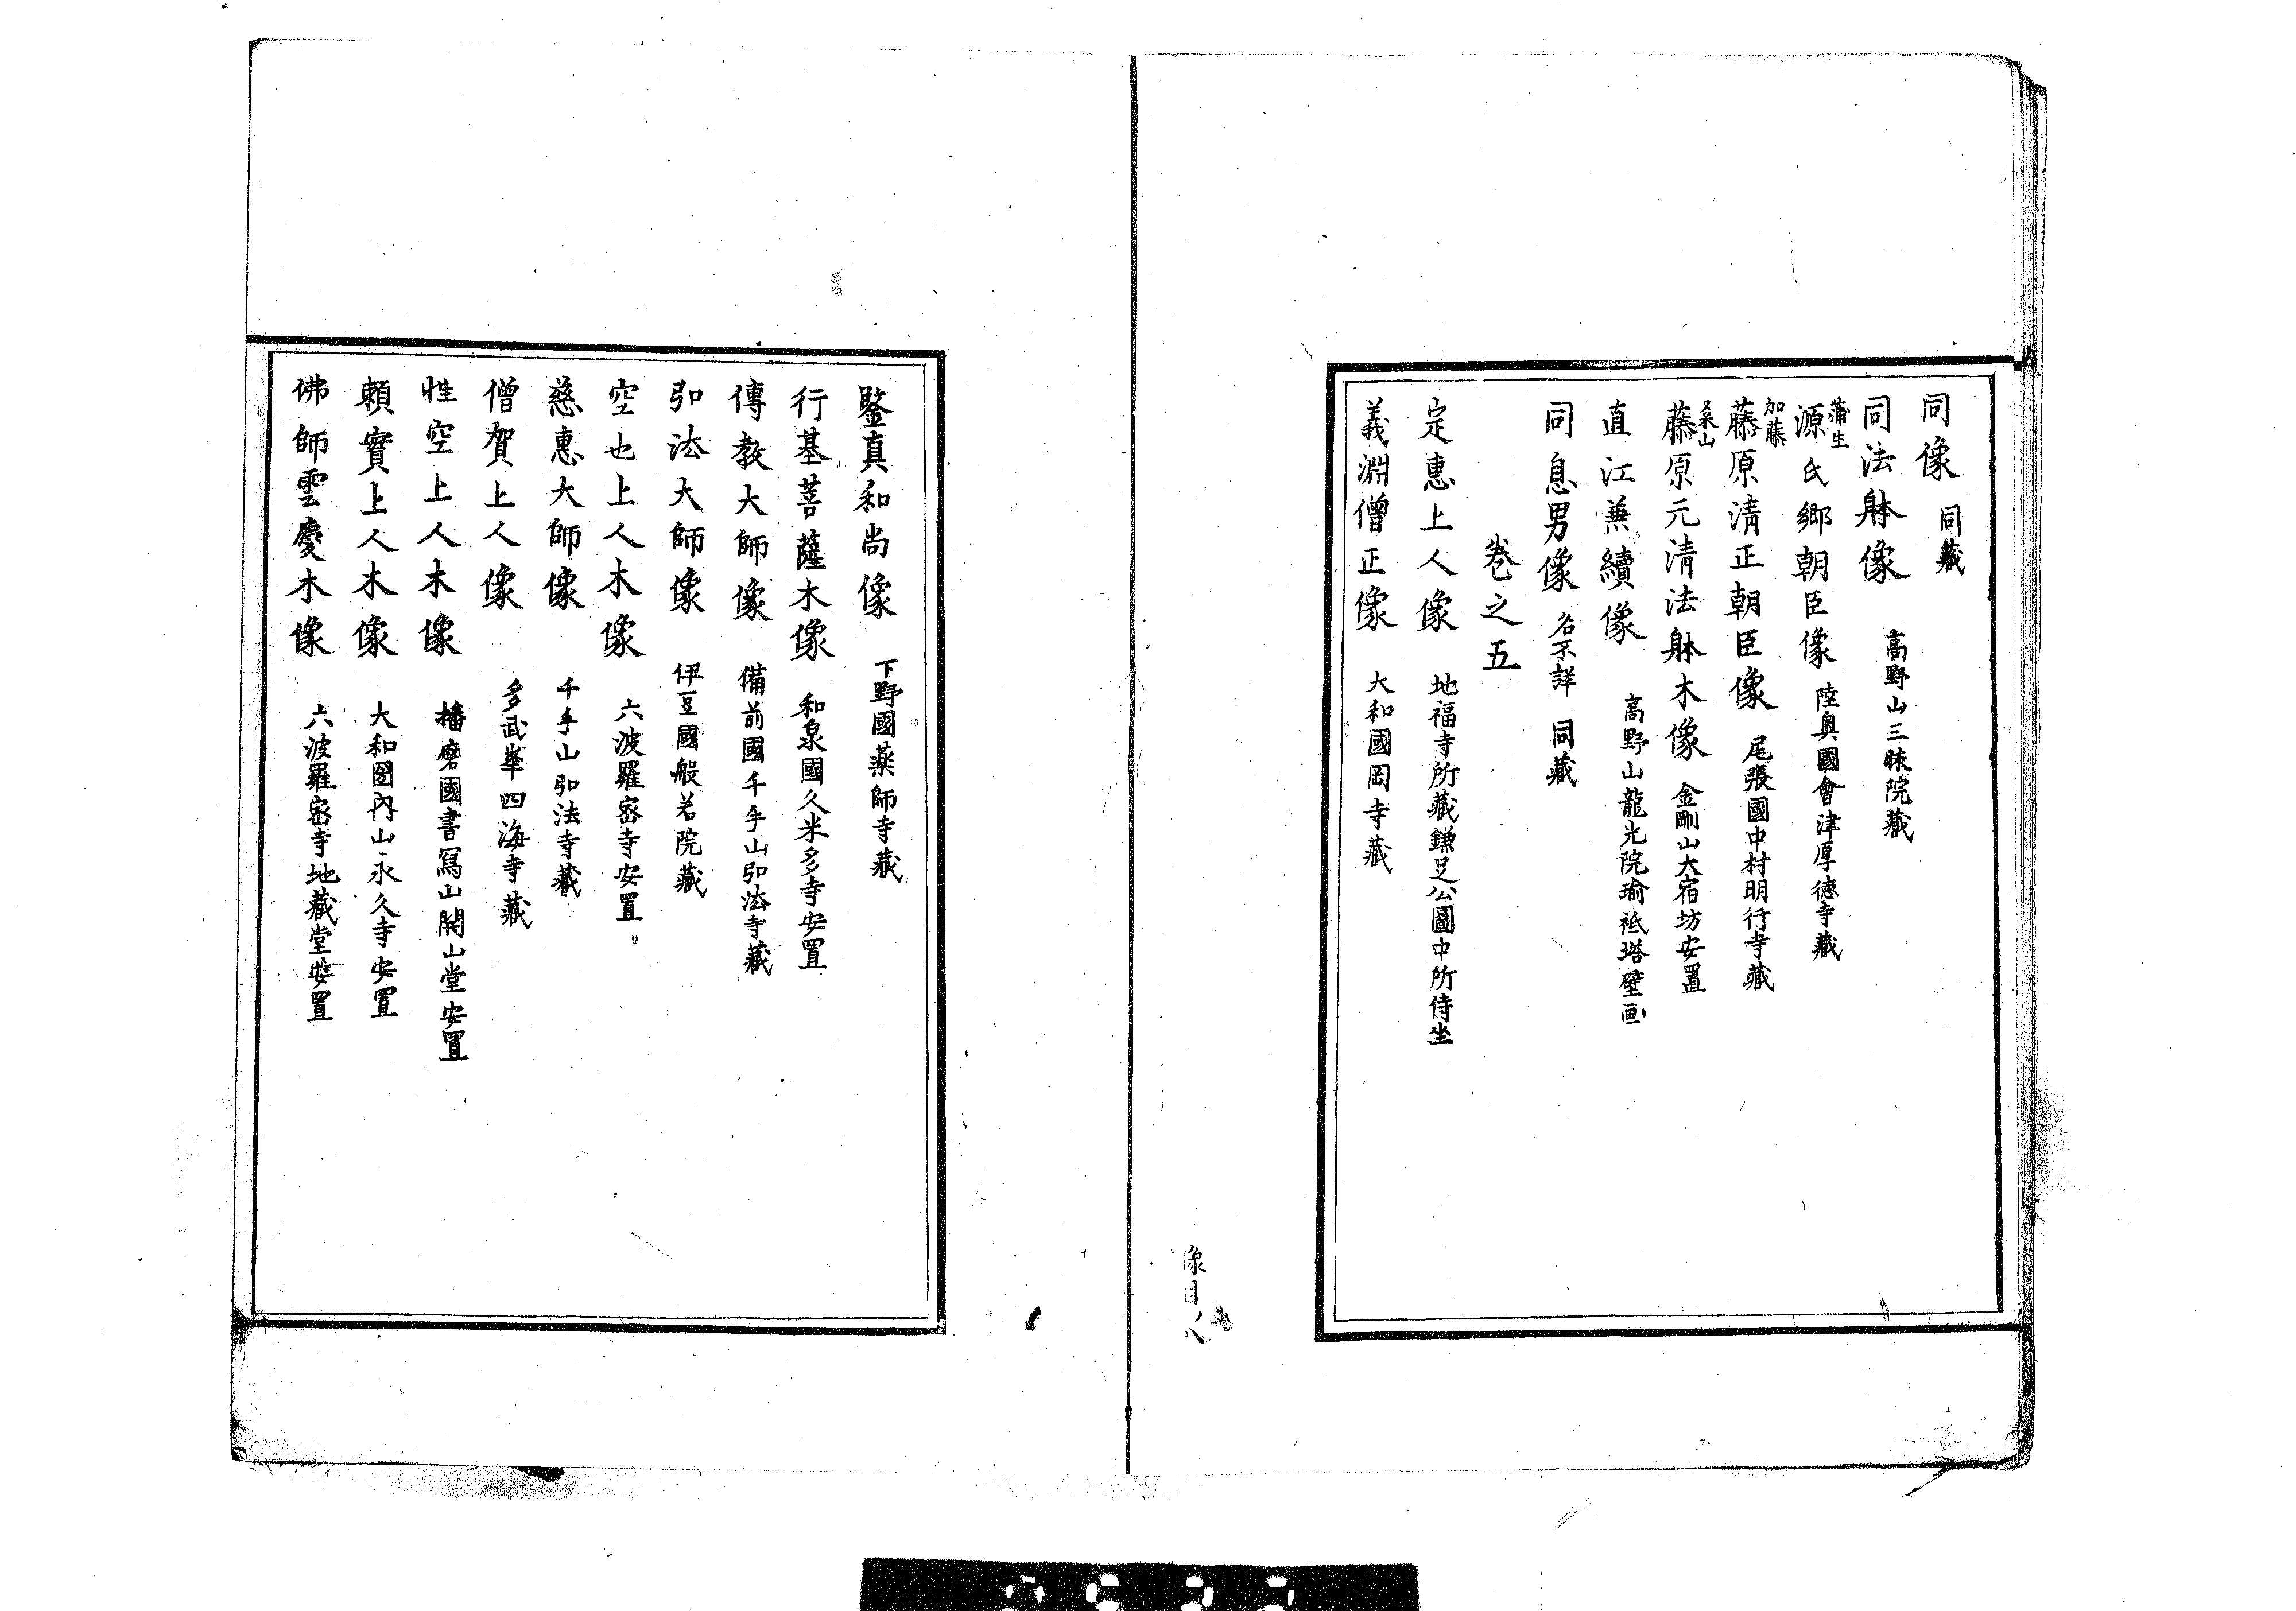 同像 同藏
同法躰像 高野山三昧院藏
蒲生
源氏郷朝臣像 陸奥國會津厚德寺藏
加藤
藤原清正朝臣像 尾張國中村明行寺藏
桑山
藤原元清法躰木像 金剛山大宿坊安置
直江兼續像 高野山龍光院瑜祗塔壁画
同息男像 名不詳 同藏
卷之五
定惠上人像 地福寺所藏鎌足公圖中所侍坐
義淵僧正像 大和國岡寺藏
像目八
鑒真和尚像 下野國藥師寺藏
行基菩薩木像 和泉國久米多寺安置
傳教大師像 備前國千手山弘法寺藏
弘法大師像 伊豆國般若院藏
空也上人木像 六波羅密寺安置
慈惠大師像 千手山弘法寺藏
僧賀上人像 多武峯四海寺藏
性空上人木像 播磨國書寫山開山堂安置
賴實上人木像 大和國內山永久寺安置
佛師雲慶木像 六波羅密寺地藏堂安置